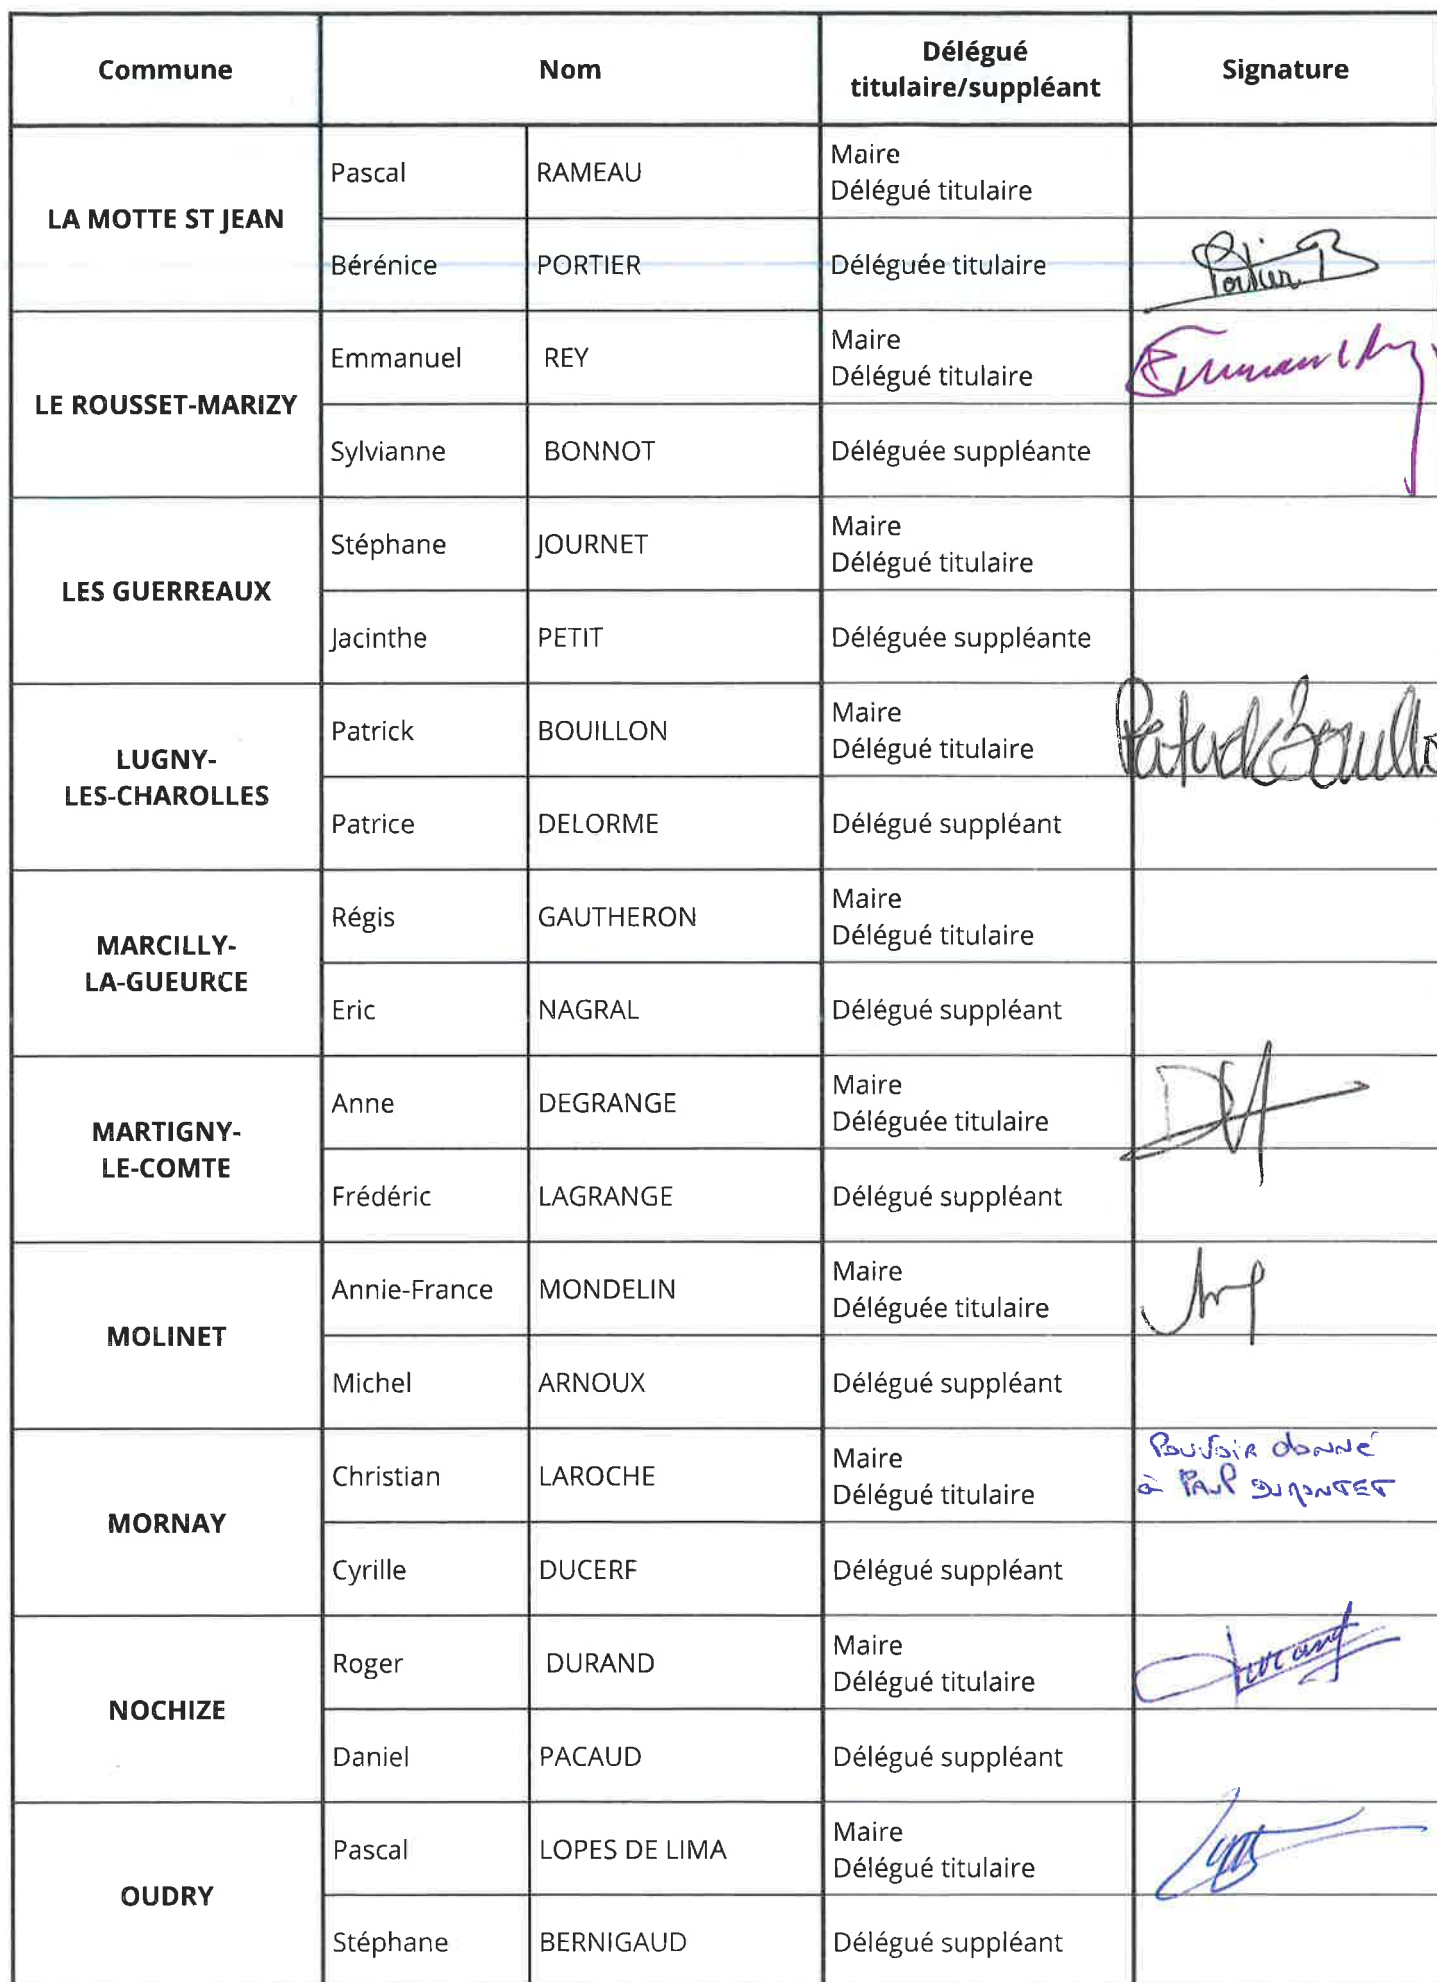 Commune Nom Délégué titulaire/suppléant Signature
LA MOTTE ST JEAN
Pascal RAMEAU Maire
Délégué titulaire
Bérénice PORTIER Déléguée titulaire Portier B
LE ROUSSET-MARIZY
Emmanuel REY Maire
Délégué titulaire
Sylvianne BONNOT Déléguée suppléante
LES GUERREAUX
Stéphane JOURNET Maire
Délégué titulaire
Jacinthe PETIT Déléguée suppléante
LUGNY-
LES-CHAROLLES
Patrick BOUILLON Maire
Délégué titulaire
Patrice DELORME Délégué suppléant
MARCILLY-
LA-GUEURCE
Régis GAUTHERON Maire
Délégué titulaire
Eric NAGRAL Délégué suppléant
MARTIGNY-
LE-COMTE
Anne DEGRANGE Maire
Déléguée titulaire
Frédéric LAGRANGE Délégué suppléant
MOLINET
Annie-France MONDELIN Maire
Déléguée titulaire
Michel ARNOUX Délégué suppléant
MORNAY
Christian LAROCHE Maire
Délégué titulaire
Pouvoir donné
à PAUL DUMONTET
Cyrille DUCERF Délégué suppléant
NOCHIZE
Roger DURAND Maire
Délégué titulaire
Durand
Daniel PACAUD Délégué suppléant
OUDRY
Pascal LOPES DE LIMA Maire
Délégué titulaire
Stéphane BERNIGAUD Délégué suppléant